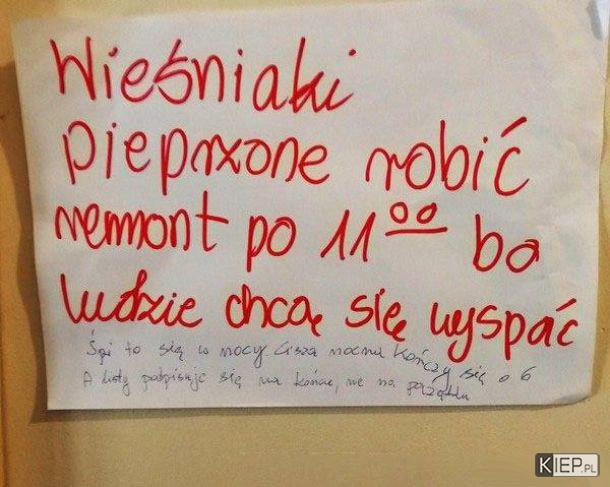 Wieśniaki
pieprzone robić
remont po 11⁰⁰ bo
ludzie chcą się wyspać
Śpi to się w nocy Cisza nocna kończy się o 6
A listy podpisuje się na końcu, nie na początku
KIEP.PL